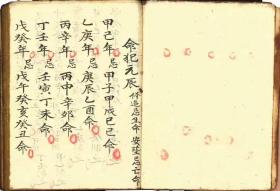 命犯元辰 修造忌生命 安葬忌亡命
甲己年忌甲子甲戌己己命
乙庚年忌庚辰乙酉命
丙辛年忌丙申辛卯命
丁壬年忌壬寅丁未命
戊癸年忌戊午癸亥癸丑命